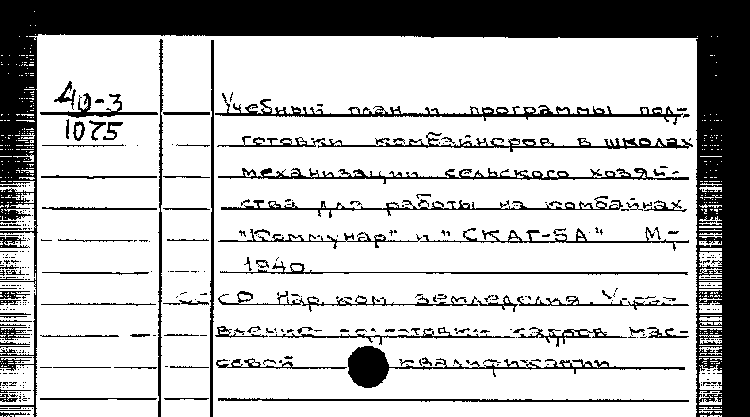 40-3
1075
Учебный план и программы под-
готовки комбайнеров в школах
механизации сельского хозяй-
ства для работы на комбайнах
"Коммунар" и "СКАГ-5А" М.,-
1940.
СССР Нар. ком. земледелия. Упра-
вление подготовки кадров мас-
совой квалификации